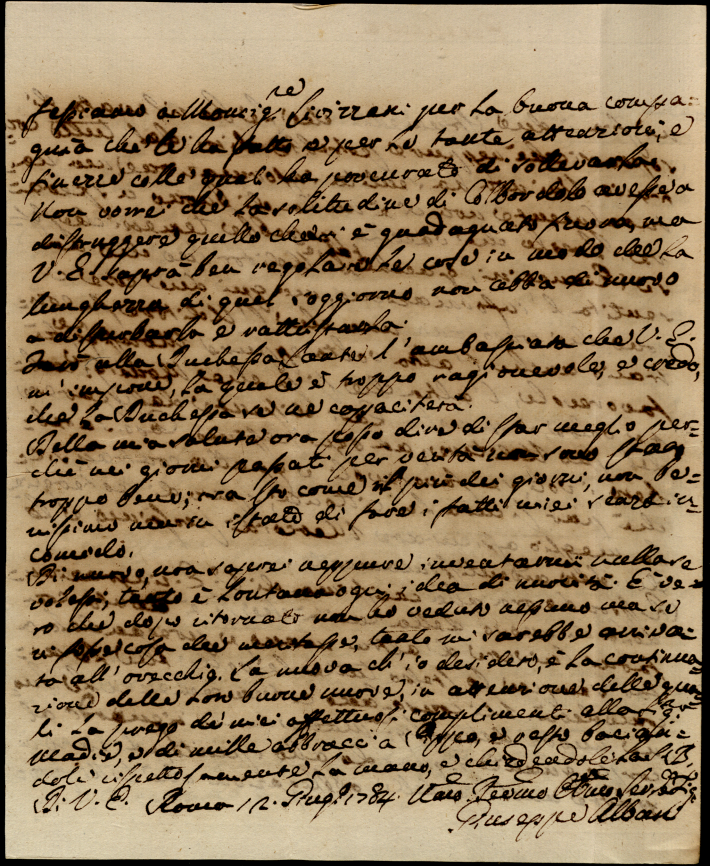 fessiamo a Monsig.re Livizzani per la buona compa-
gnia che le ha fatto e per le tante attenzioni, e
finezze colle quali ha procurato di sollevarla.
Non vorrei che la solitudine di Colbordolo avesse a
distruggere quello che si è guadagnato finora, ma
V. E. saprà ben regolare le cose in modo che la
lunghezza di quel soggiorno non abbia di nuovo
a disturbarla e rattristarla.
Farò alla Duchessa l'ambasciata che V. E.
m'impone, la quale è troppo ragionevole, e credo,
che la Duchessa se ne capaciterà.
Della mia salute ora posso dire di star meglio per-
chè nei giorni passati per verità non sono stato
troppo bene; ora sto come il più dei giorni, non be-
nissimo ma in istato di fare i fatti miei senza in-
comodo.
Di nuovo, non saprei neppure inventarmi nulla se
volessi, tanto è lontana ogni idea di novità. È ve-
ro che dopo ritornato non ho veduto nessuno ma se
vi fosse cosa che meritasse, tanto mi sarebbe arriva-
ta all'orecchio. La nuova ch'io desidero, è la continua-
zione delle loro buone nuove, in attenzione delle qua-
li la prego de' miei affettuosi complimenti alla Sig.ra
Madre, e di mille abbracci a, e resto bacian-
dole rispettosamente la mano, e chiedendole la S. B.
Di V. E. Roma 12. Giug.o 1784.
Giuseppe Albani